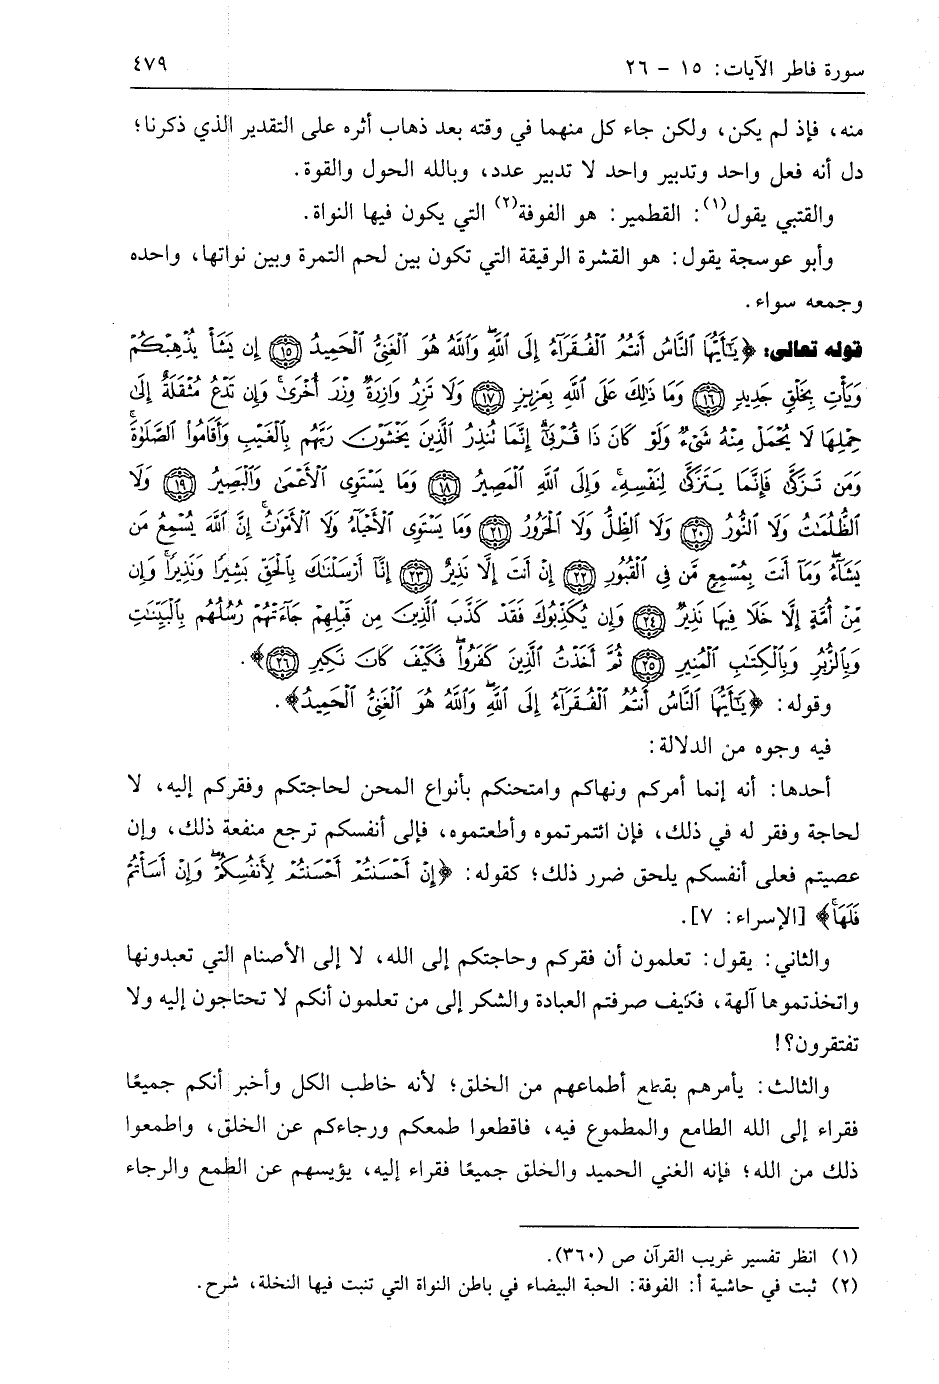 سورة فاطر الآيات: ١٥ - ٢٦ ٤٧٩
منه، فإذ لم يكن، ولكن جاء كل منهما في وقته بعد ذهاب أثره على التقدير الذي ذكرنا؛
دل أنه فعل واحد وتدبير واحد لا تدبير عدد، وبالله الحول والقوة.
والقتبي يقول(١): القطمير: هو الفوفة(٢) التي يكون فيها النواة.
وأبو عوسجة يقول: هو القشرة الرقيقة التي تكون بين لحم التمرة وبين نواتها، واحده
وجمعه سواء.
قوله تعالى: ﴿يَٰٓأَيُّهَا ٱلنَّاسُ أَنتُمُ ٱلۡفُقَرَآءُ إِلَى ٱللَّهِۖ وَٱللَّهُ هُوَ ٱلۡغَنِيُّ ٱلۡحَمِيدُ ١٥ إِن يَشَأۡ يُذۡهِبۡكُمۡ
وَيَأۡتِ بِخَلۡقٖ جَدِيدٖ ١٦ وَمَا ذَٰلِكَ عَلَى ٱللَّهِ بِعَزِيزٖ ١٧ وَلَا تَزِرُ وَازِرَةٞ وِزۡرَ أُخۡرَىٰۚ وَإِن تَدۡعُ مُثۡقَلَةٌ إِلَىٰ
حِمۡلِهَا لَا يُحۡمَلۡ مِنۡهُ شَيۡءٞ وَلَوۡ كَانَ ذَا قُرۡبَىٰٓۗ إِنَّمَا تُنذِرُ ٱلَّذِينَ يَخۡشَوۡنَ رَبَّهُم بِٱلۡغَيۡبِ وَأَقَامُواْ ٱلصَّلَوٰةَۚ
وَمَن تَزَكَّىٰ فَإِنَّمَا يَتَزَكَّىٰ لِنَفۡسِهِۦۚ وَإِلَى ٱللَّهِ ٱلۡمَصِيرُ ١٨ وَمَا يَسۡتَوِي ٱلۡأَعۡمَىٰ وَٱلۡبَصِيرُ ١٩ وَلَا
ٱلظُّلُمَٰتُ وَلَا ٱلنُّورُ ٢٠ وَلَا ٱلظِّلُّ وَلَا ٱلۡحَرُورُ ٢١ وَمَا يَسۡتَوِي ٱلۡأَحۡيَآءُ وَلَا ٱلۡأَمۡوَٰتُۚ إِنَّ ٱللَّهَ يُسۡمِعُ مَن
يَشَآءُۖ وَمَآ أَنتَ بِمُسۡمِعٖ مَّن فِي ٱلۡقُبُورِ ٢٢ إِنۡ أَنتَ إِلَّا نَذِيرٌ ٢٣ إِنَّآ أَرۡسَلۡنَٰكَ بِٱلۡحَقِّ بَشِيرٗا وَنَذِيرٗاۚ وَإِن
مِّنۡ أُمَّةٍ إِلَّا خَلَا فِيهَا نَذِيرٞ ٢٤ وَإِن يُكَذِّبُوكَ فَقَدۡ كَذَّبَ ٱلَّذِينَ مِن قَبۡلِهِمۡ جَآءَتۡهُمۡ رُسُلُهُم بِٱلۡبَيِّنَٰتِ
وَبِٱلزُّبُرِ وَبِٱلۡكِتَٰبِ ٱلۡمُنِيرِ ٢٥ ثُمَّ أَخَذۡتُ ٱلَّذِينَ كَفَرُواْۖ فَكَيۡفَ كَانَ نَكِيرِ ٢٦﴾.
وقوله: ﴿يَٰٓأَيُّهَا ٱلنَّاسُ أَنتُمُ ٱلۡفُقَرَآءُ إِلَى ٱللَّهِۖ وَٱللَّهُ هُوَ ٱلۡغَنِيُّ ٱلۡحَمِيدُ﴾.
فيه وجوه من الدلالة:
أحدها: أنه إنما أمركم ونهاكم وامتحنكم بأنواع المحن لحاجتكم وفقركم إليه، لا
لحاجة وفقر له في ذلك، فإن ائتمرتموه وأطعتموه، فإلى أنفسكم ترجع منفعة ذلك، وإن
عصيتم فعلى أنفسكم يلحق ضرر ذلك؛ كقوله: ﴿إِنۡ أَحۡسَنتُمۡ أَحۡسَنتُمۡ لِأَنفُسِكُمۡۖ وَإِنۡ أَسَأۡتُمۡ
فَلَهَاۚ﴾ [الإسراء: ٧].
والثاني: يقول: تعلمون أن فقركم وحاجتكم إلى الله، لا إلى الأصنام التي تعبدونها
واتخذتموها آلهة، فكيف صرفتم العبادة والشكر إلى من تعلمون أنكم لا تحتاجون إليه ولا
تفتقرون؟!
والثالث: يأمرهم بقطع أطماعهم من الخلق؛ لأنه خاطب الكل وأخبر أنكم جميعًا
فقراء إلى الله الطامع والمطموع فيه، فاقطعوا طمعكم ورجاءكم عن الخلق، واطمعوا
ذلك من الله؛ فإنه الغني الحميد والخلق جميعًا فقراء إليه، يؤيسهم عن الطمع والرجاء
(١) انظر تفسير غريب القرآن ص (٣٦٠).
(٢) ثبت في حاشية أ: الفوفة: الحبة البيضاء في باطن النواة التي تنبت فيها النخلة، شرح.